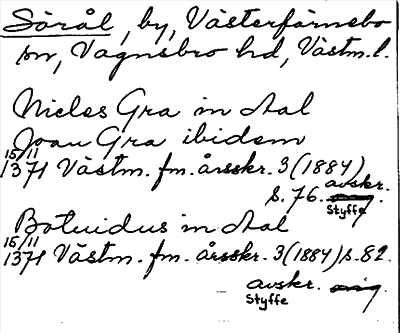 Sörål, by, Västerfärnebo
sn, Vagnsbro hd, Västm. l.
Nicles Gra in Aal
Joan Gra ibidem
15/11
1371 Västm. fm. årsskr. 3 (1884)
avskr.
s. 76. orig.
Styffe
Botuidus in Aal
15/11
1371 Västm. fm. årsskr. 3 (1884) s. 82.
avskr. orig.
Styffe